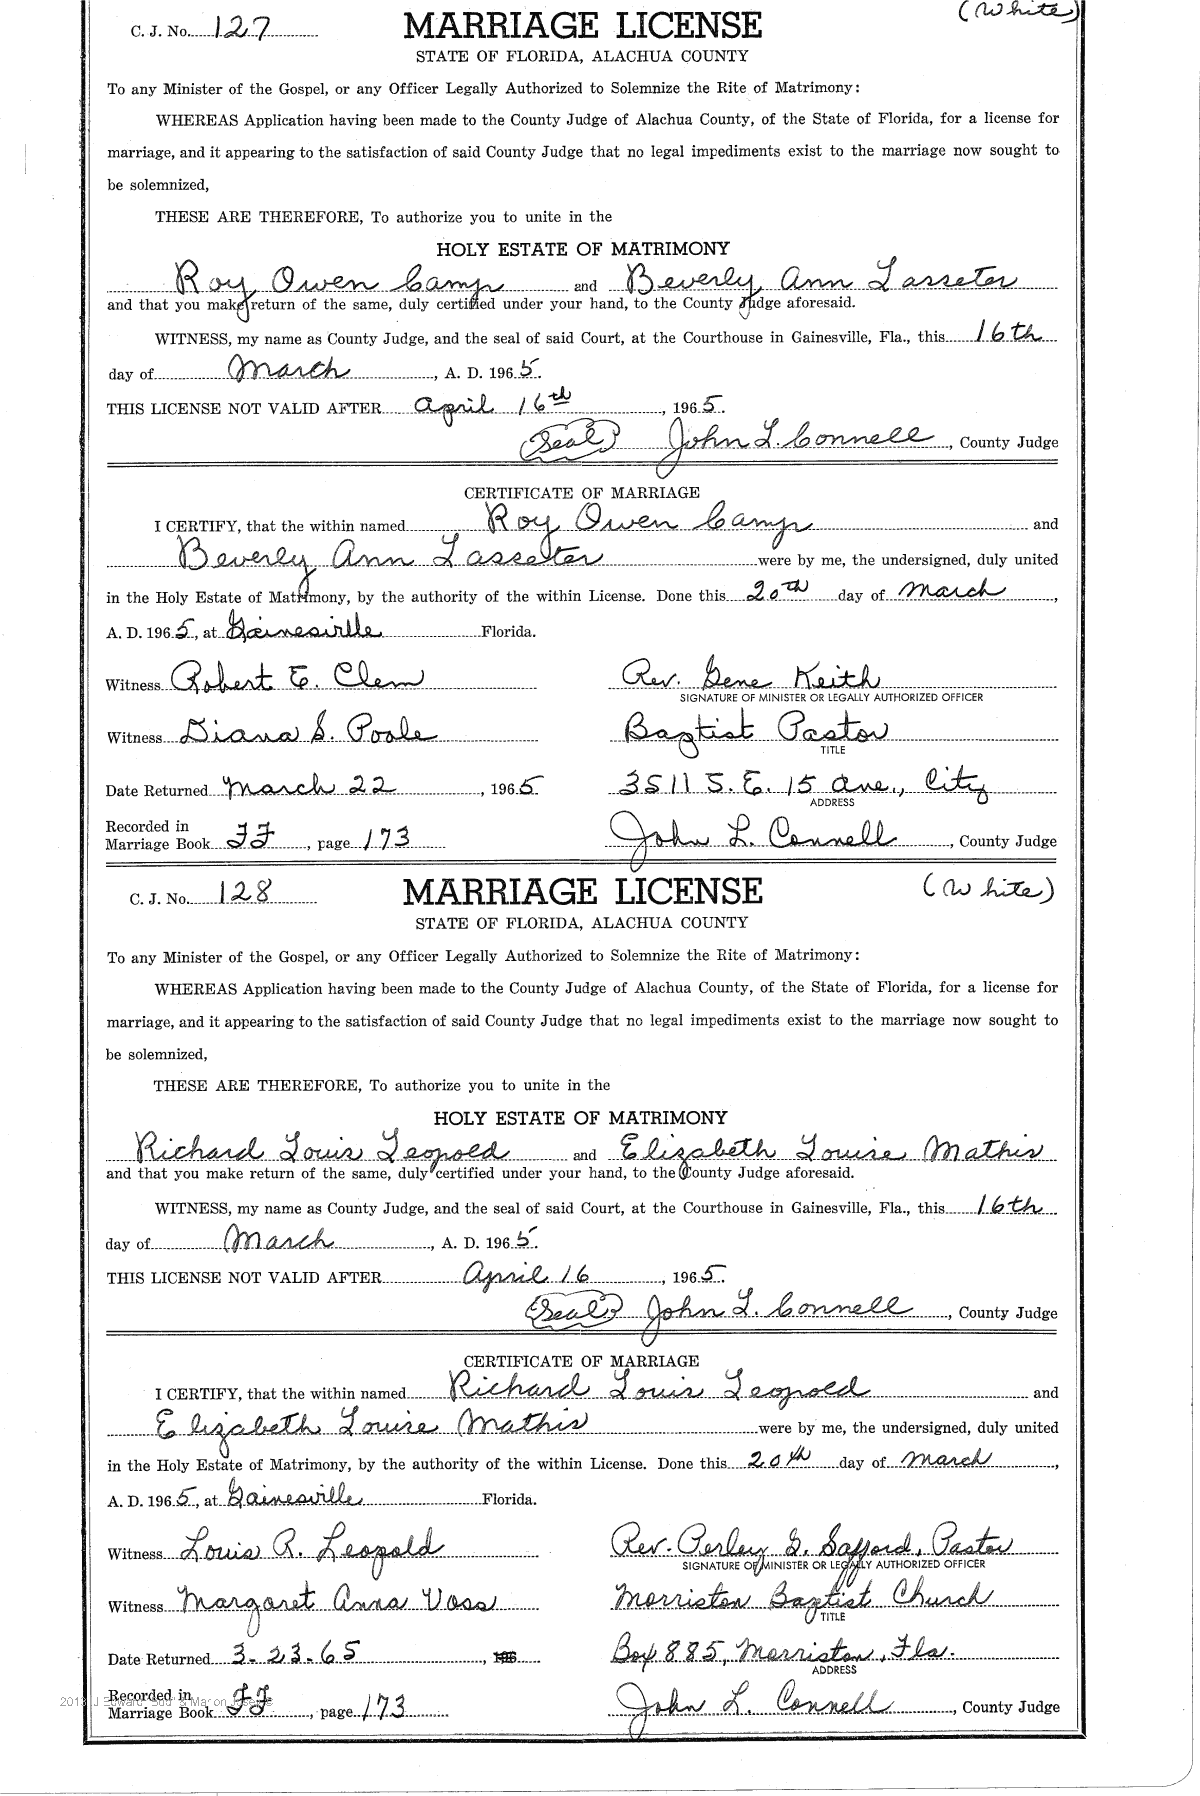 C. J. No. 127 MARRIAGE LICENSE (White)
STATE OF FLORIDA, ALACHUA COUNTY
To any Minister of the Gospel, or any Officer Legally Authorized to Solemnize the Rite of Matrimony:
WHEREAS Application having been made to the County Judge of Alachua County, of the State of Florida, for a license for
marriage, and it appearing to the satisfaction of said County Judge that no legal impediments exist to the marriage now sought to
be solemnized,
THESE ARE THEREFORE, To authorize you to unite in the
HOLY ESTATE OF MATRIMONY
Roy Owen Camp and Beverly Ann Lasseter
and that you make return of the same, duly certified under your hand, to the County Judge aforesaid.
WITNESS, my name as County Judge, and the seal of said Court, at the Courthouse in Gainesville, Fla., this 16th
day of March, A. D. 1965.
THIS LICENSE NOT VALID AFTER April 16th, 1965.
(Seal) John L. Connell, County Judge
CERTIFICATE OF MARRIAGE
I CERTIFY, that the within named Roy Owen Camp and
Beverly Ann Lasseter were by me, the undersigned, duly united
in the Holy Estate of Matrimony, by the authority of the within License. Done this 20th day of March,
A. D. 1965, at Gainesville Florida.
Witness Robert E. Clem Rev. Gene Keith
SIGNATURE OF MINISTER OR LEGALLY AUTHORIZED OFFICER
Witness Diana S. Poole Baptist Pastor
TITLE
Date Returned March 22, 1965 3511 S. E. 15 Ave., City
ADDRESS
Recorded in
Marriage Book FF, page 173 John L. Connell, County Judge
C. J. No. 128 MARRIAGE LICENSE (White)
STATE OF FLORIDA, ALACHUA COUNTY
To any Minister of the Gospel, or any Officer Legally Authorized to Solemnize the Rite of Matrimony:
WHEREAS Application having been made to the County Judge of Alachua County, of the State of Florida, for a license for
marriage, and it appearing to the satisfaction of said County Judge that no legal impediments exist to the marriage now sought to
be solemnized,
THESE ARE THEREFORE, To authorize you to unite in the
HOLY ESTATE OF MATRIMONY
Richard Louis Leopold and Elizabeth Louise Mathis
and that you make return of the same, duly certified under your hand, to the County Judge aforesaid.
WITNESS, my name as County Judge, and the seal of said Court, at the Courthouse in Gainesville, Fla., this 16th
day of March, A. D. 1965.
THIS LICENSE NOT VALID AFTER April 16, 1965.
(Seal) John L. Connell, County Judge
CERTIFICATE OF MARRIAGE
I CERTIFY, that the within named Richard Louis Leopold and
Elizabeth Louise Mathis were by me, the undersigned, duly united
in the Holy Estate of Matrimony, by the authority of the within License. Done this 20th day of March,
A. D. 1965, at Gainesville Florida.
Witness Louis R. Leopold Rev. Perley G. Safford, Pastor
SIGNATURE OF MINISTER OR LEGALLY AUTHORIZED OFFICER
Witness Margaret Anna Voss Morriston Baptist Church
TITLE
Date Returned 3-23-65, 196 Box 885, Morriston, Fla.
ADDRESS
Recorded in
Marriage Book FF, page 173 John L. Connell, County Judge